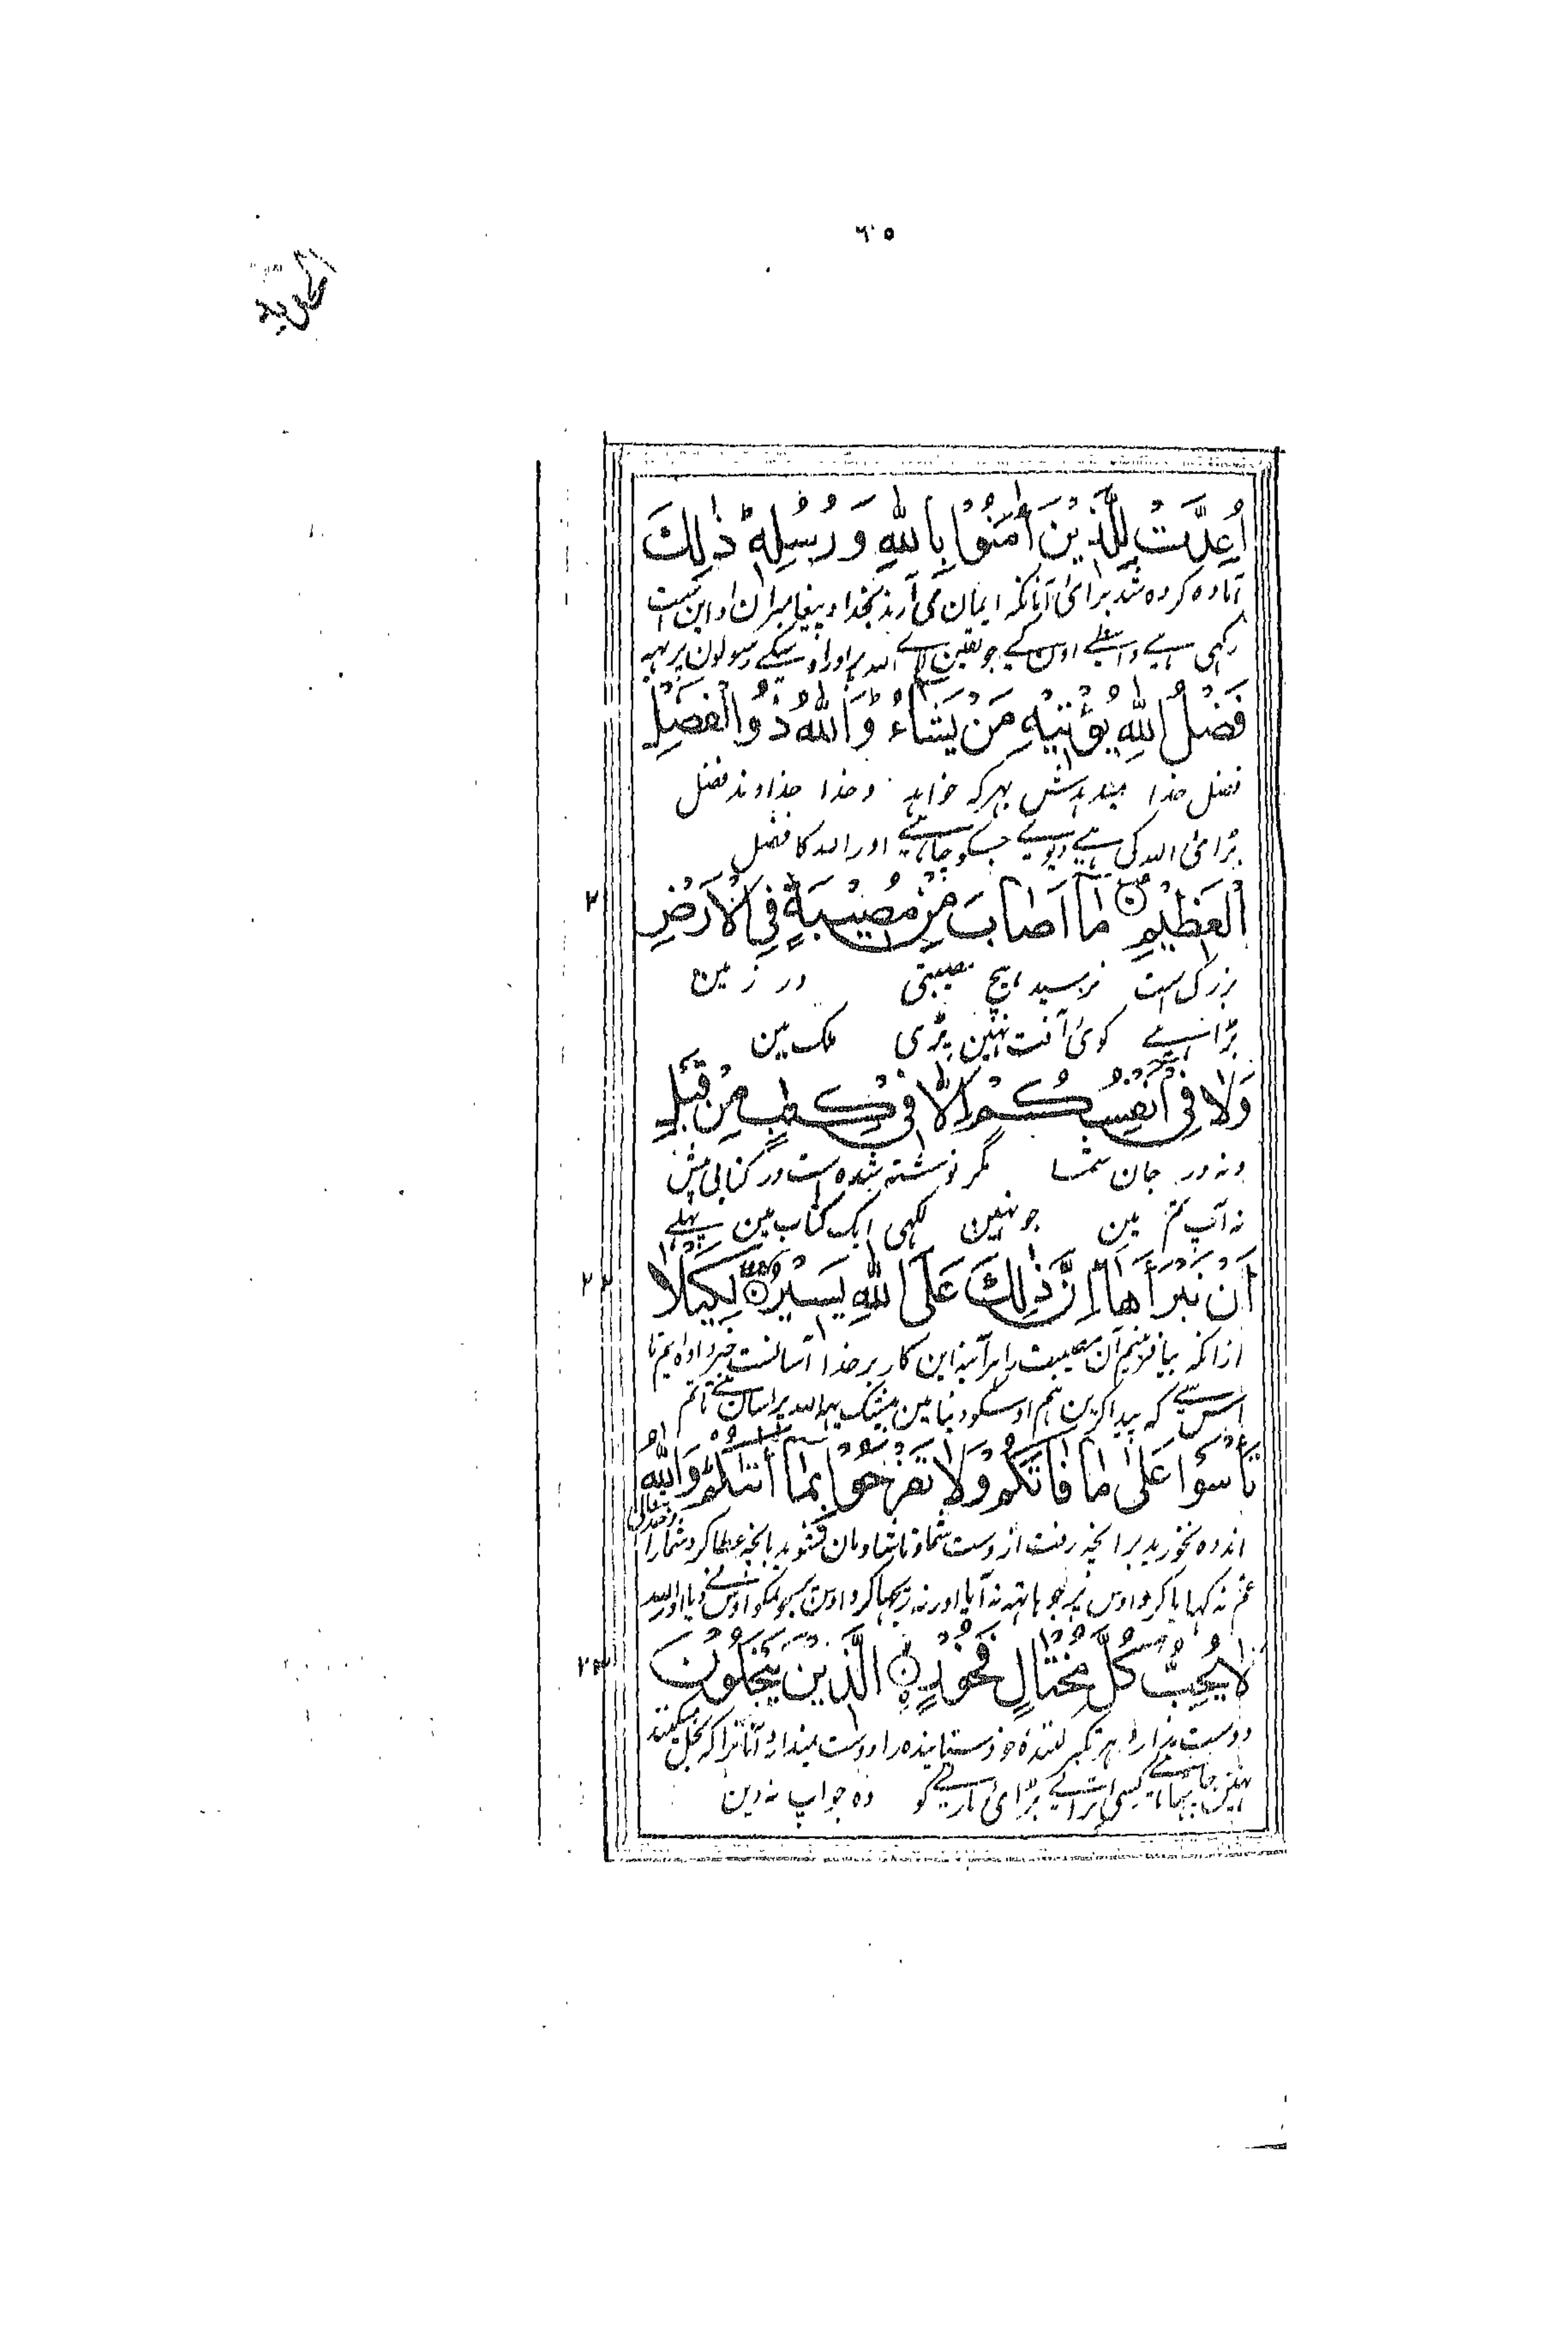 ٦٠٥
الحدید
اُعِدَّتْ لِلَّذِیْنَ اٰمَنُوْا بِاللّٰهِ وَرُسُلِهٖ ؕ ذٰلِكَ
آماده کرده شد برای آنانکه ایمان می آرند بخدا و پیغامبران او این است
رکهی ہے واسطے اوس کے جو یقین لائے اللہ پر اور اوسکے رسولون پر یہہ
فَضْلُ اللّٰهِ یُؤْتِیْهِ مَنْ یَّشَآءُ ؕ وَاللّٰهُ ذُو الْفَضْلِ
فضل خدا میدہدش بہرکہ خواہد و خدا خداوند فضل
بڑائی اللہ کی ہے دیوے جسکو چاہیے اور اللہ کا فضل
الْعَظِیْمِ ۝ مَاۤ اَصَابَ مِنْ مُّصِیْبَةٍ فِی الْاَرْضِ
بزرگ است نرسید ہیچ مصیبتی در زمین
بڑا ہے کوئی آفت نہین پڑی ملک مین
وَلَا فِیْۤ اَنْفُسِكُمْ اِلَّا فِیْ كِتٰبٍ مِّنْ قَبْلِ
و نہ در جان شما مگر نوشتہ شدہ است در کتابی پیش
نہ آپ تم مین جو نہین لکہی ایک کتاب مین پہلے
اَنْ نَّبْرَاَهَا ؕ اِنَّ ذٰلِكَ عَلَی اللّٰهِ یَسِیْرٌ ۝ لِّكَیْلَا
ازانکہ بیافرینیم آن مصیبت را ہرآینہ این کار بر خدا آسانست خبر دادہ ایم تا
اس سے کہ پیدا کرین ہم اوسکو دنیا مین بیشک یہہ اللہ پر آسان ہے تا تم
تَاْسَوْا عَلٰی مَا فَاتَكُمْ وَلَا تَفْرَحُوْا بِمَاۤ اٰتٰىكُمْ ؕ وَاللّٰهُ
اندوہ نخورید برانچہ رفت از دست شما و تا شادمان نشوید بانچہ عطا کرد شمارا
غم نہ کہایا کرو اوس پر جو ہاتہہ نہ آیا اور نہ ریجہا کرو اوس پر جو تمکو اوس نے دیا اور اللہ
لَا یُحِبُّ كُلَّ مُخْتَالٍ فَخُوْرٍ ۝ الَّذِیْنَ یَبْخَلُوْنَ
دوست ندارد ہر تکبر کنندہ خود ستایندہ را دوست ندارد آنانرا کہ بخل میکنند
نہین چاہتا ہے کسی اتراتے بڑائی مارتے کو وہ جو آپ نہ دین